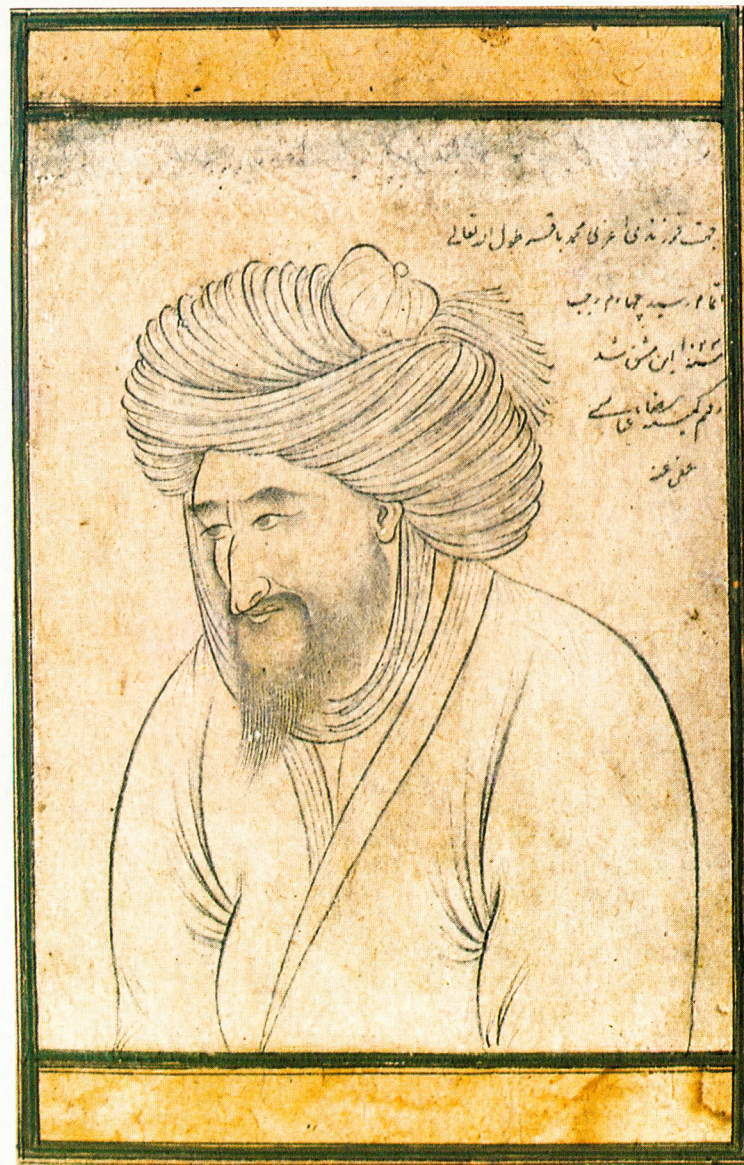 جهت فرزندی اعزی محمد باقر طول الله تعالی
اتمام رسید چهارم رجب
سنه ۱۰۲۲ این مشق شد
رقم کمینه رضا عباسی
عفی عنه